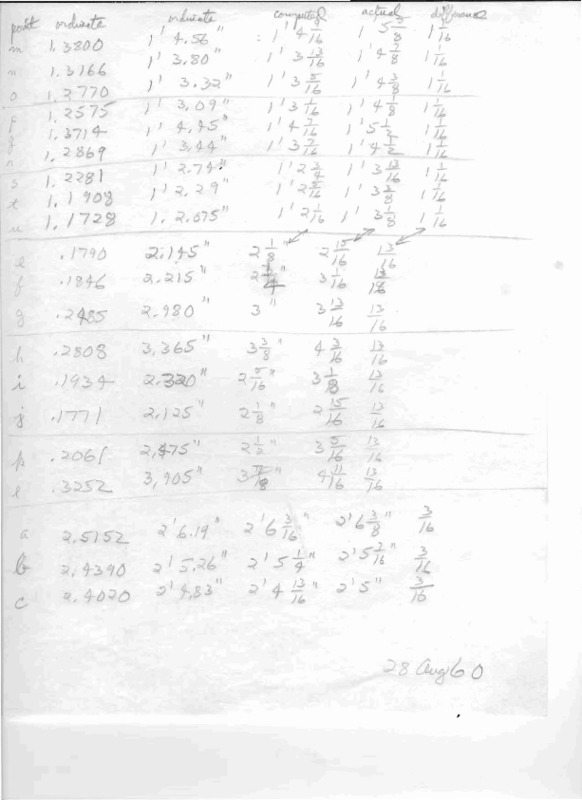 point ordinate ordinate computed actual difference
m 1.3800 1' 4.56" 1' 4 9/16 1' 5 5/8 1 1/16
n 1.3166 1' 3.80" 1' 3 13/16 1' 4 7/8 1 1/16
o 1.2770 1' 3.32" 1' 3 5/16 1' 4 3/8 1 1/16
p 1.2575 1' 3.09" 1' 3 1/16 1' 4 1/8 1 1/16
q 1.3714 1' 4.45" 1' 4 7/16 1' 5 1/2 1 1/16
r 1.2869 1' 3.44" 1' 3 7/16 1' 4 1/2 1 1/16
s 1.2281 1' 2.74" 1' 2 3/4 1' 3 13/16 1 1/16
t 1.1908 1' 2.29" 1' 2 5/16 1' 3 3/8 1 1/16
u 1.1728 1. 2.075" 1' 2 1/16 1' 3 1/8 1 1/16
e .1790 2.145" 2 1/8" 2 15/16 13/16
f .1846 2.215" 2 1/4" 3 1/16 13/16
g .2485 2.980" 3" 3 13/16 13/16
h .2808 3.365" 3 3/8" 4 3/16 13/16
i .1934 2.320" 2 5/16" 3 1/8 13/16
j .1771 2.125" 2 1/8" 2 15/16 13/16
k .2061 2.475" 2 1/2" 3 5/16 13/16
l .3252 3.905" 3 7/8" 4 11/16 13/16
a 2.5152 2' 6.19" 2' 6 3/16" 2' 6 3/8" 3/16
b 2.4390 2' 5.26" 2' 5 1/4" 2' 5 7/16" 3/16
c 2.4020 2' 4.83" 2' 4 13/16" 2' 5" 3/16
28 Aug 60